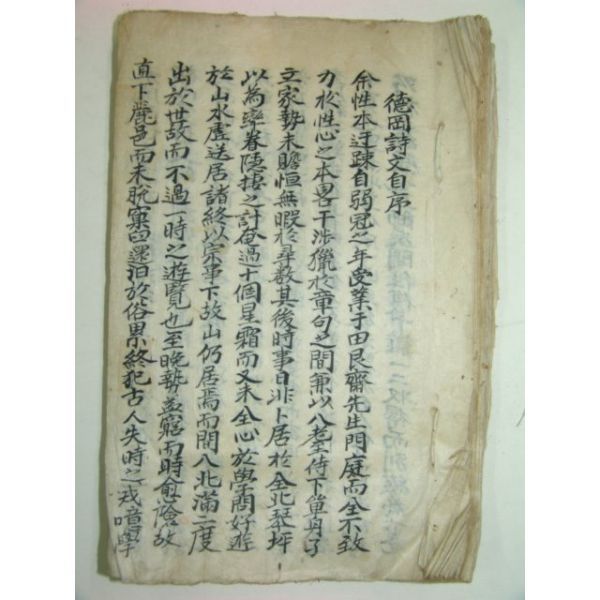 德岡詩文自序
余性本迂疎自弱冠之年受業于田艮齋先生門庭而全不致
力於性心之本畧干涉獵於章句之間兼以八耋侍下單身子
立家勢未贍恒無暇於尋數其後時事日非卜居於全北琴坪
以爲率眷隱捿之計奄過十個星霜而又未全心於學問好遊
於山水虛送居諸終以宗事下故山仍居焉而間入北滿二度
出於世故而不過一時之遊覽也至晚勢益窮而時愈險故
直下麗邑而未脫窠臼還汨於俗累終犯古人失時之戒噫學